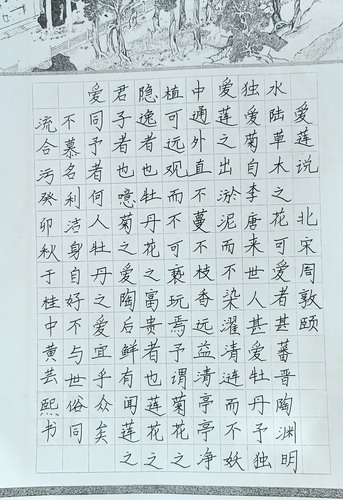 爱莲说 北宋周敦颐
水陆草木之花可爱者甚蕃晋陶渊明
独爱菊自李唐来世人甚爱牡丹予独
爱莲之出淤泥而不染濯清涟而不妖
中通外直不蔓不枝香远益清亭亭净
植可远观而不可亵玩焉予谓菊花之
隐逸者也牡丹花之富贵者也莲花之
君子者也噫菊之爱陶后鲜有闻莲之
爱同予者何人牡丹之爱宜乎众矣
不慕名利洁身自好不与世俗同
流合污癸卯秋于桂中黄芸熙书